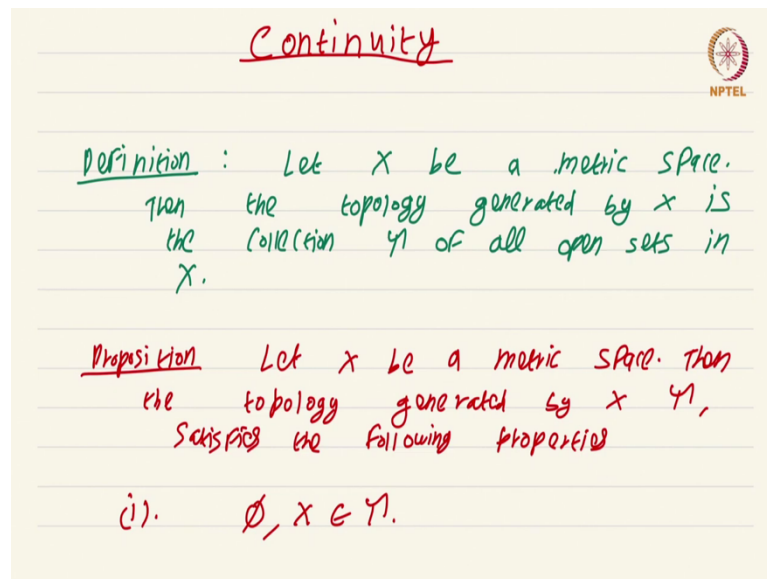 Continuity
NPTEL
Definition : Let X be a metric space.
Then the topology generated by X is
the collection 𝒯 of all open sets in
X.
Proposition Let X be a metric space. Then
the topology generated by X 𝒯,
satisfies the following properties
(i). ∅, X ∈ 𝒯.